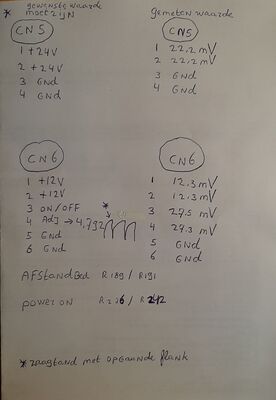 * gewenste waarde
moet zijn
gemeten waarde
CN5
1 +24V
2 +24V
3 GNd
4 GNd
CN5
1 22,2 mV
2 22,2 mV
3 GNd
4 GNd
CN6
1 +12V
2 +12V
3 ON/OFF
4 Adj → 4,792
*
5 GNd
6 GNd
CN6
1 12.3 mV
2 12.3 mV
3 27.5 mV
4 29.3 mV
5 GNd
6 GNd
AFStANdBed R189 / R191
power ON R226 / R242
* zaagtand met opgaande flank